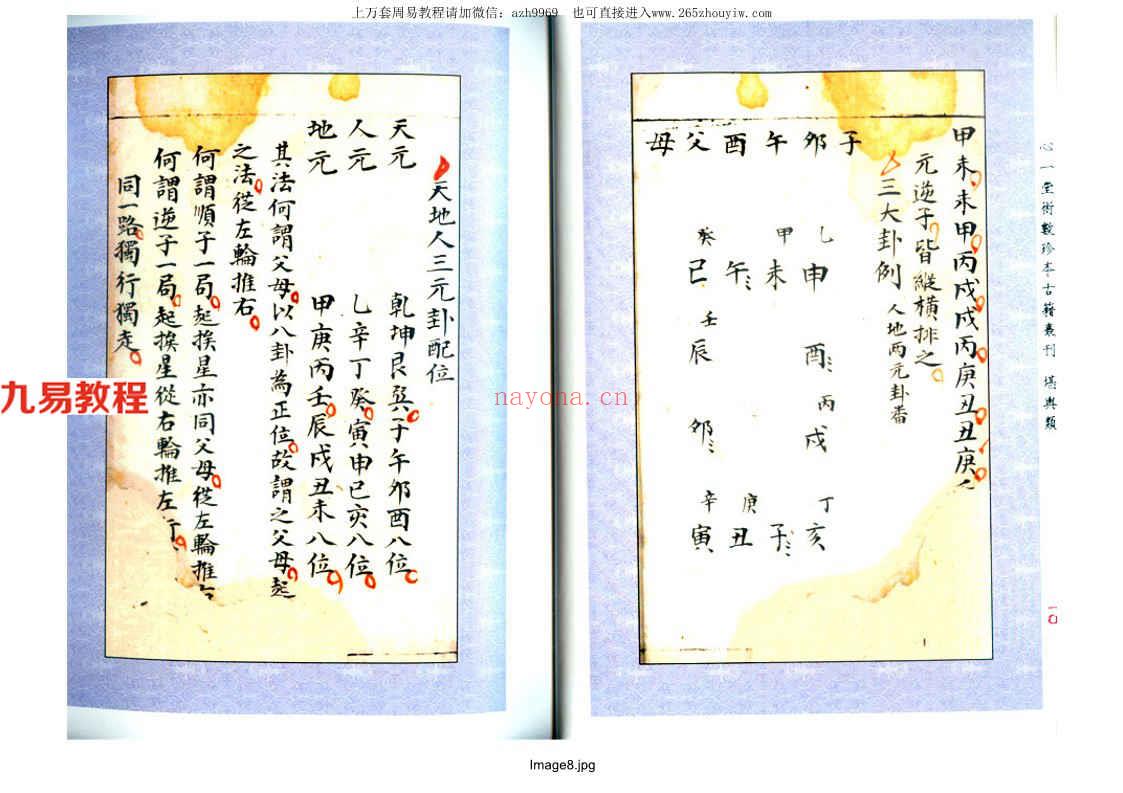 上万套周易教程请加微信：azh9969 也可直接进入www.265zhouyiw.com
心一堂術數珍本古籍叢刊 堪輿類
甲未未甲丙戌戌丙庚丑丑庚
元逆子皆縱橫排之
三大卦例 人地兩元卦番
子卯午酉父母
乙申 酉 丙戌 丁亥
甲未 子
午 庚丑
癸巳 壬辰 卯 辛寅
一〇
天地人三元卦配位
天元 乾坤艮巽子午卯酉八位
人元 乙辛丁癸寅申巳亥八位
地元 甲庚丙壬辰戌丑未八位
其法何謂父母以八卦為正位故謂之父母起
之法從左輪推右
何謂順子一局起挨星亦同父母從左輪推右
何謂逆子一局起挨星從右輪推左行
同一路獨行獨走
九易教程
nayona.cn
Image8.jpg